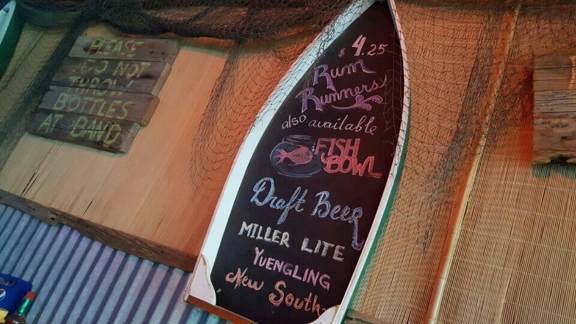 PLEASE
DO NOT
THROW
BOTTLES
AT BAND
$4.25
Rum
Runners
also available
FISH
BOWL
Draft Beer
MILLER LITE
YUENGLING
New South